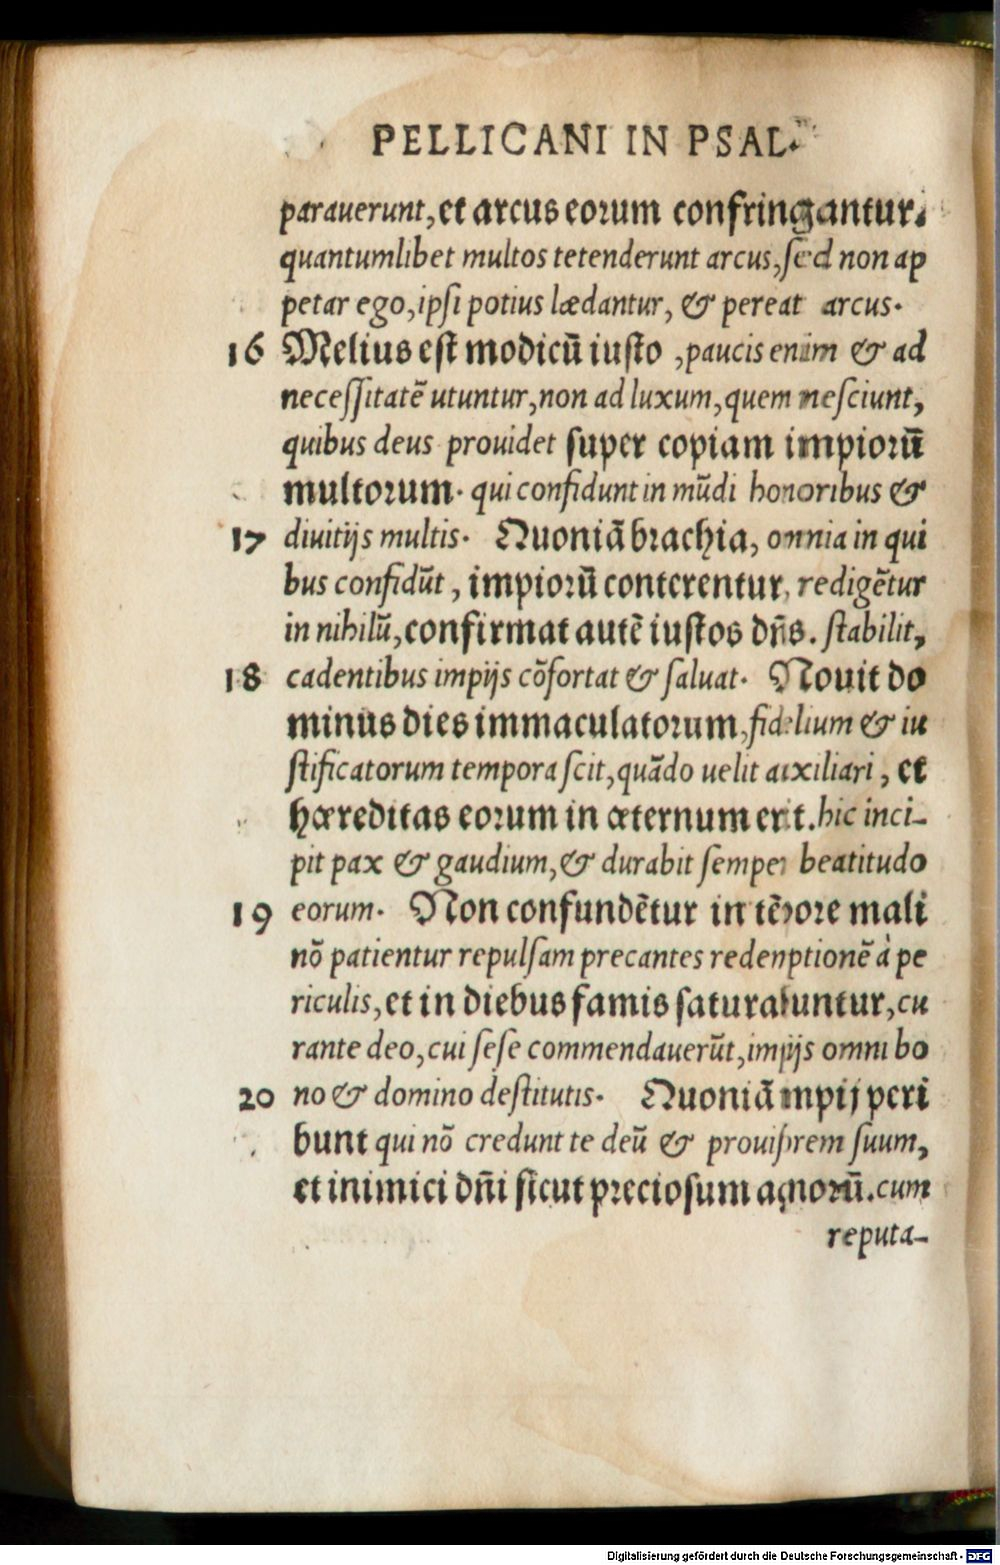 PELLICANI IN PSAL.
parauerunt, et arcus eorum confringantur.
quantumlibet multos tetenderunt arcus, sed non ap
petar ego, ipsi potius lædantur, & pereat arcus.
16 Melius est modicū iusto, paucis enim & ad
necessitatē utuntur, non ad luxum, quem nesciunt,
quibus deus prouidet super copiam impiorū
multorum. qui confidunt in mūdi honoribus &
17 diuitijs multis. Quoniā brachia, omnia in qui
bus confidūt, impiorū conterentur, redigētur
in nihilū, confirmat autē iustos dn̄s. stabilit,
18 cadentibus impijs cōfortat & saluat. Nouit do
minus dies immaculatorum, fidelium & iu
stificatorum tempora scit, quādo uelit auxiliari, et
hæreditas eorum in æternum erit. hic inci-
pit pax & gaudium, & durabit semper beatitudo
19 eorum. Non confundētur in tēpore mali
nō patientur repulsam precantes redemptionē à pe
riculis, et in diebus famis saturabuntur, cu
rante deo, cui sese commendauerūt, impijs omni bo
20 no & domino destitutis. Quoniā impij peri
bunt qui nō credunt te deū & prouisorem suum,
et inimici dn̄i sicut preciosum agnorū. cum
reputa-
Digitalisierung gefördert durch die Deutsche Forschungsgemeinschaft - DFG